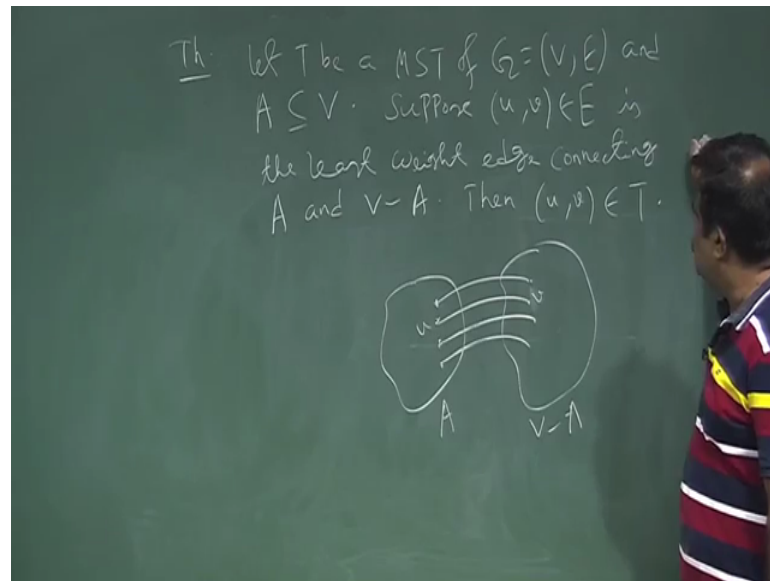 Th. Let T be a MST of G=(V,E) and
A ⊆ V. Suppose (u,v) ∈ E is
the least weight edge connecting
A and V-A. Then (u,v) ∈ T.
u v
A V-A